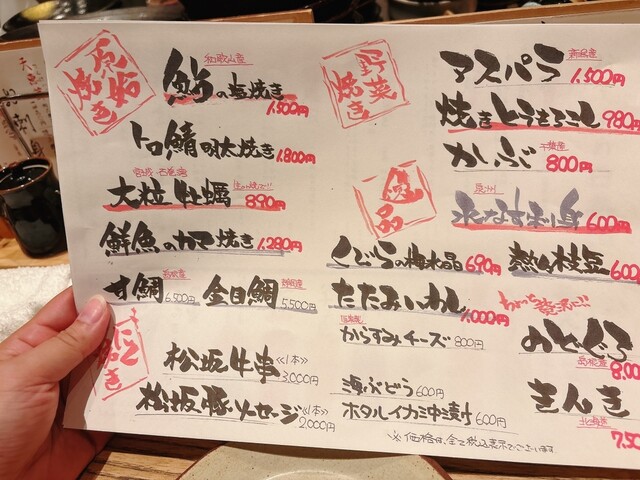 原始焼き
和歌山産
鮎の塩焼き
1,500円
トロ鯖の火焼き 1,800円
大粒牡蠣
890円
鮮魚のカマ焼き 1,280円
甘鯛 6,500円
金目鯛 5,500円
松坂牛串 《1本》
3,000円
松坂豚ソーセージ 《1本》
2,000円
野菜焼き
アスパラ
1,500円
焼きとうもろこし 980円
かいぶ
千葉産
800円
逸品
泉州
水なす刺身
600円
くじらの梅水晶 690円
熱々枝豆
たたみいわし
1,000円
からすみチーズ 800円
海ぶどう 600円
ホタルイカ沖漬け 600円
のどぐろ
島根産
きんき
※価格は全て税込表示でございます